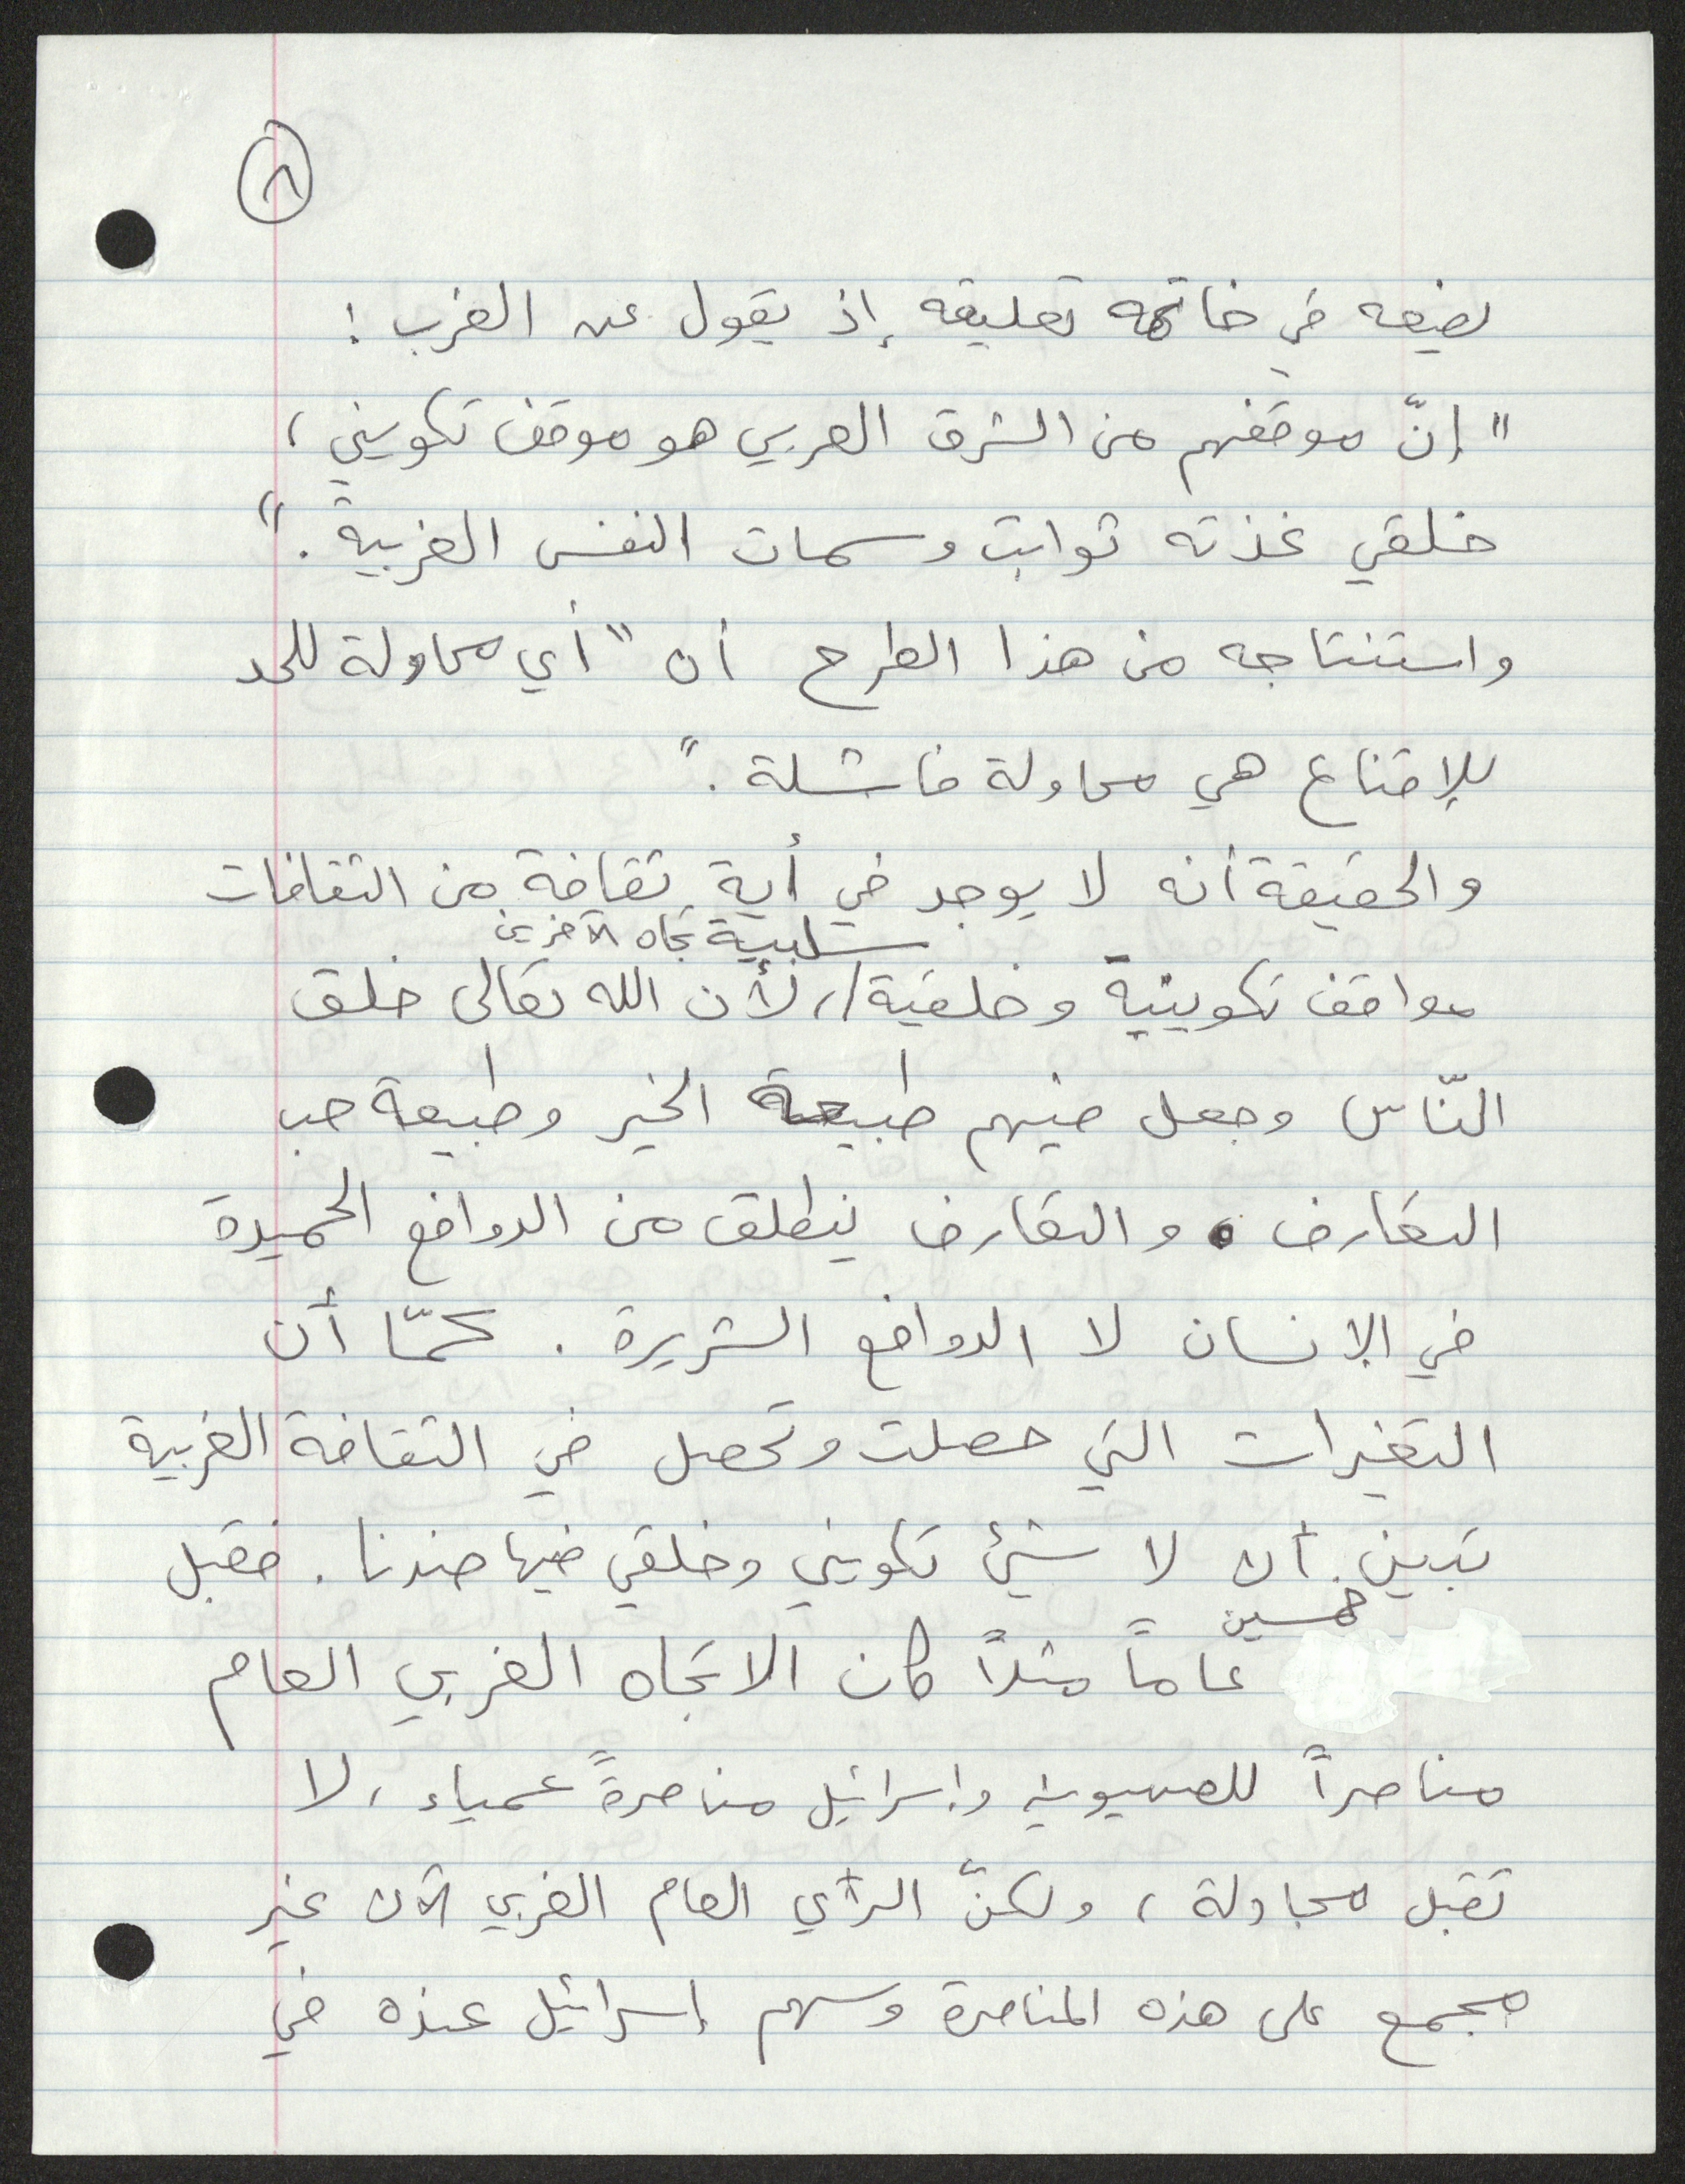 ٨
يضيعه في خاتمة تعليقه إذ يقول عن الغرب :
" إنّ موقفهم من الشرق العربي هو موقف تكويني ،
خلقي غذته ثوابت وسمات النفس الغربية . "
واستنتاجه من هذا الطرح أن " أي محاولة للحد
للإقناع هي محاولة فاشلة . "
والحقيقة أنه لا يوجد في أية ثقافة من الثقافات
سلبية تجاه الآخرين
مواقف تكوينية وخلقية / ، لأن الله تعالى خلق
النّاس وجعل فيهم طبيعة الخير وطبيعة حب
التعارف . والتعارف ينطلق من الدوافع الحميدة
في الإنسان لا الدوافع الشريرة . كمّا أن
التغيرات التي حصلت وتحصل في الثقافة الغربية
تبين أن لا شيئ تكويني وخلقي فيها ضدنا . فقبل
خمسين
عاماً مثلاً كان الاتجاه الغربي العام
مناصراً للصهيونية وإسرائيل مناصرةً عمياء ، لا
تقبل مجادلة ، ولكنّ الرأي العام الغربي الآن غير
مجمع على هذه المناصرة وسهم إسرائيل عنده في